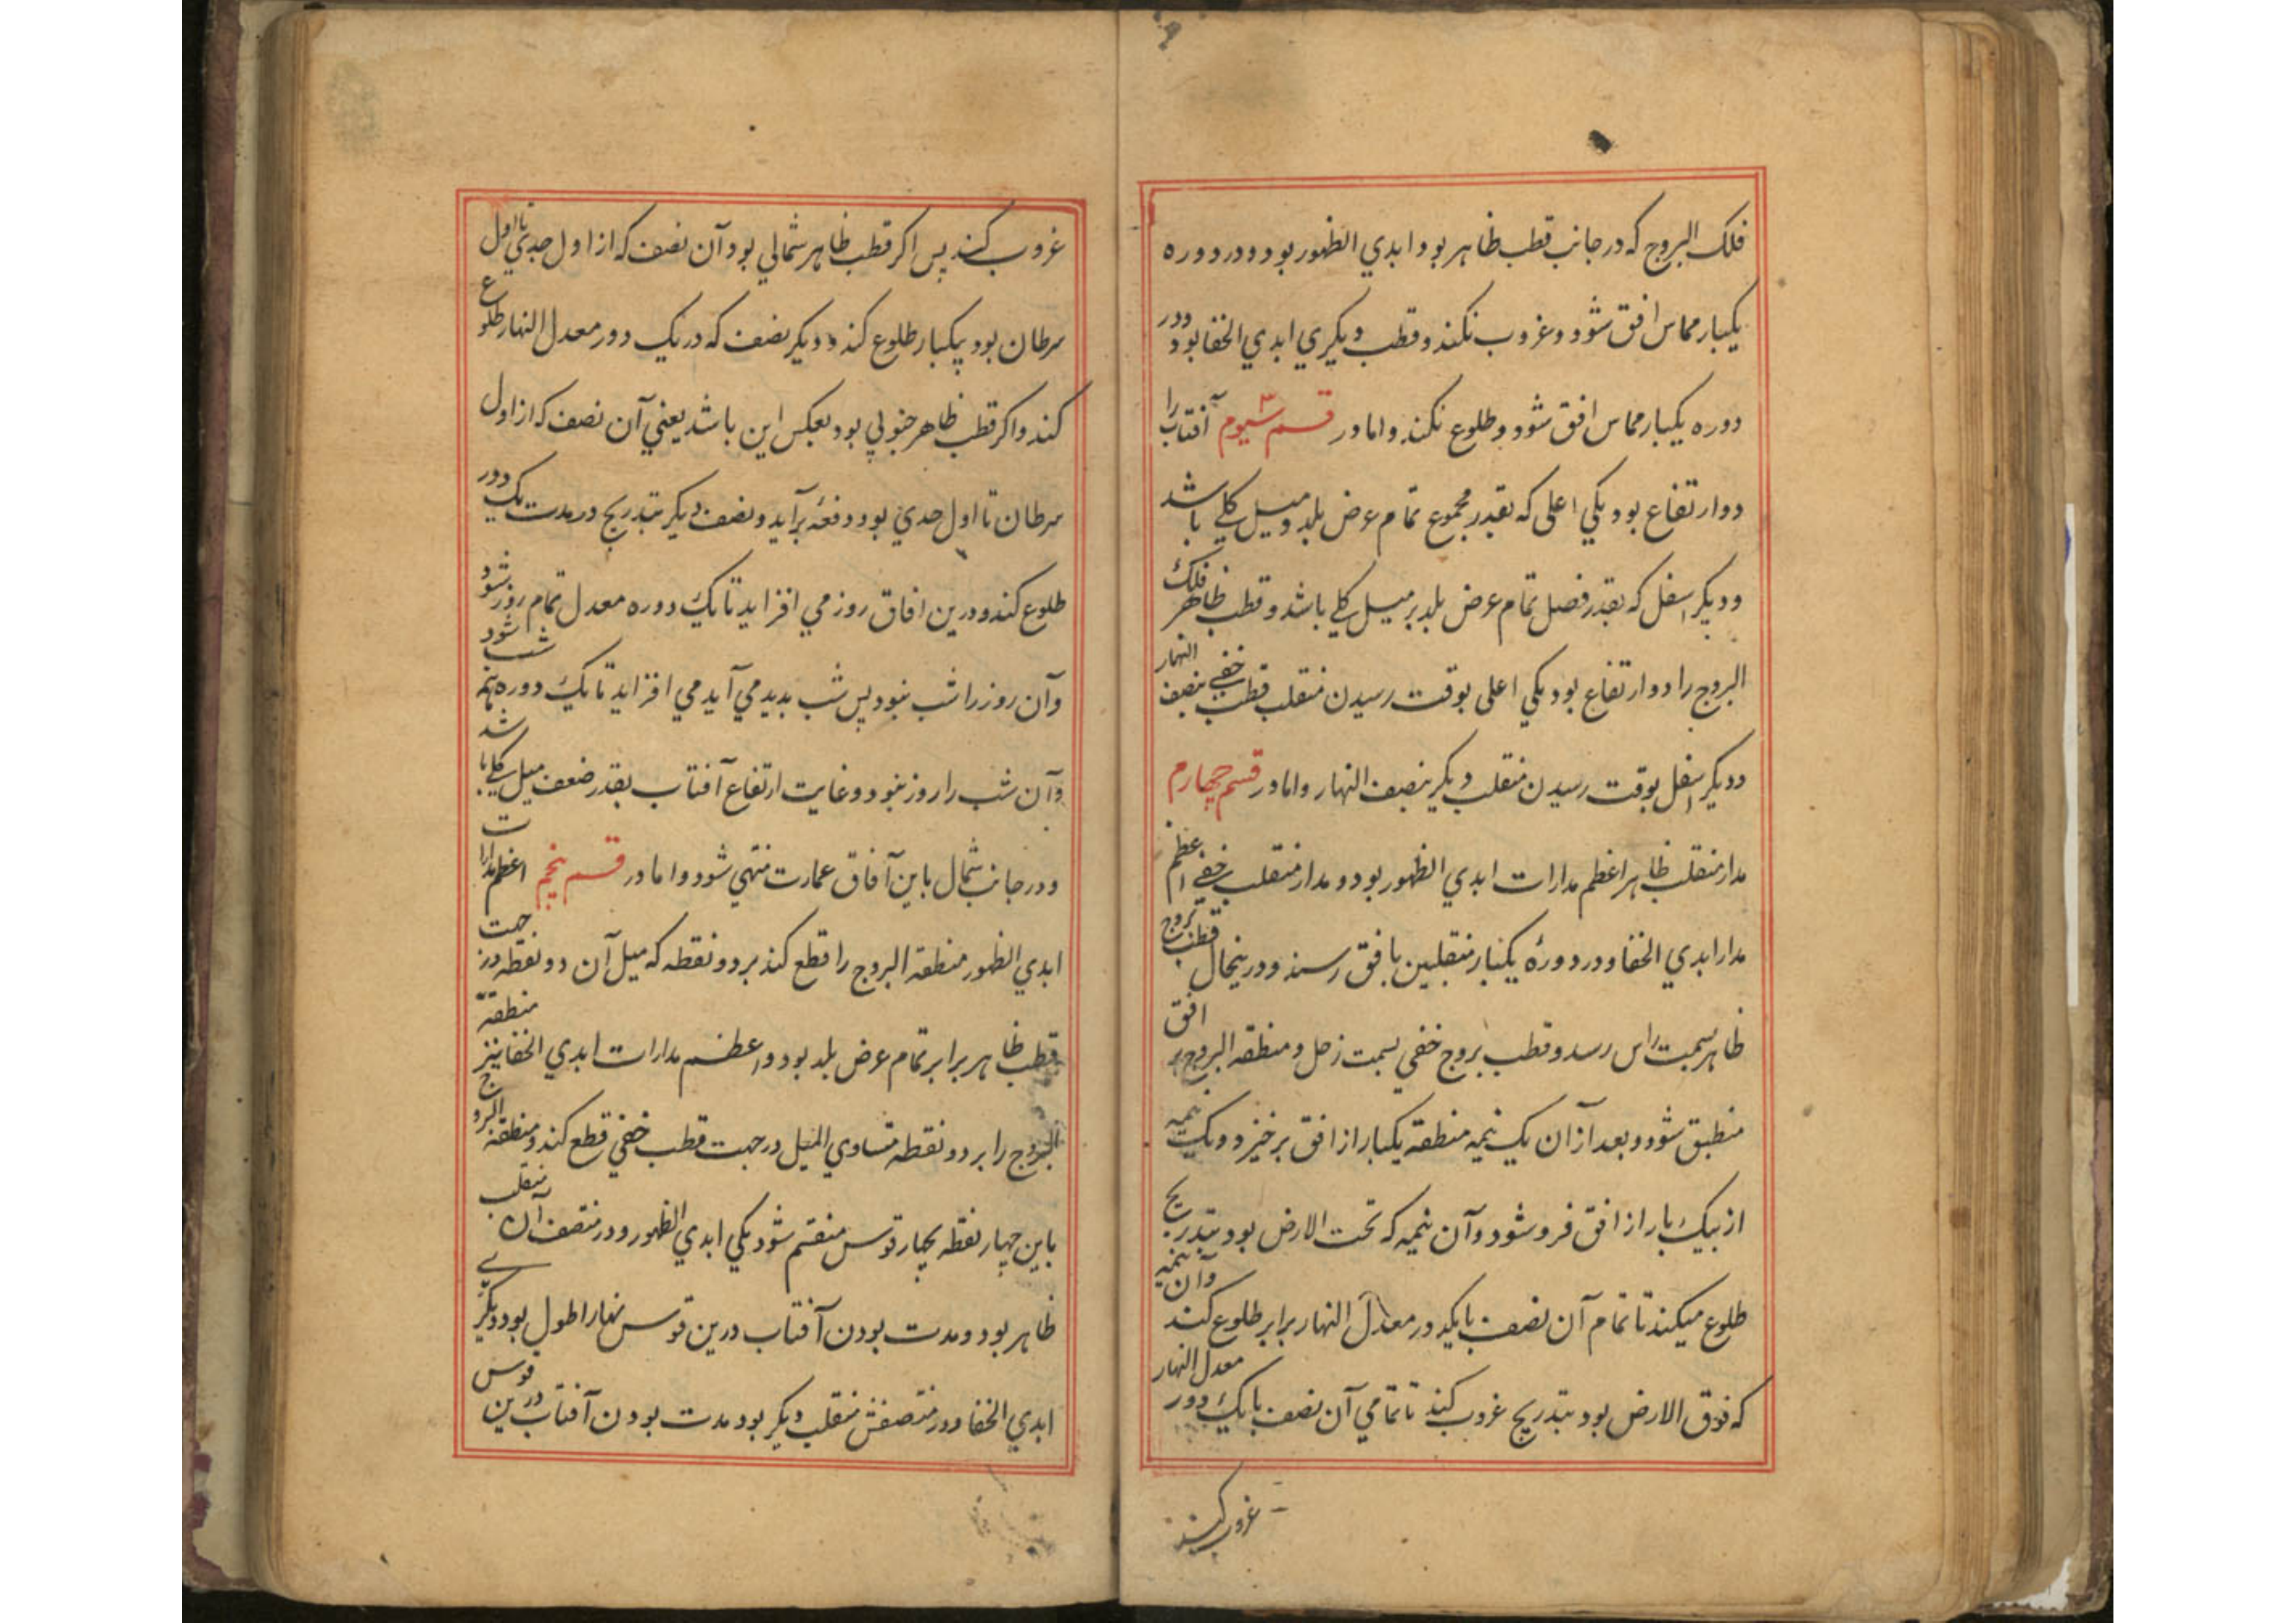 فلک البروج که در جانب قطب ظاهر بود ابدي الظهور بود و در دوره
یکبار مماس افق شود و غروب نکند و قطب دیکري ابدي الخفا بود و در
دوره یکبار مماس افق شود و طلوع نکند و اما در قسم سیوم ۳ آفتاب را
دو ارتفاع بود یکي اعلی که بقدر مجموع تمام عرض بلد و میل کلي باشد
و دیکر اسفل که بقدر فصل تمام عرض بلد بر میل کلي باشد و قطب ظاهر فلک
البروج را دو ارتفاع بود یکي اعلی بوقت رسیدن منقلب خفي بنصف النهار
و دیکر اسفل بوقت رسیدن منقلب دیکر بنصف النهار و اما در قسم چهارم
مدار منقلب ظاهر اعظم مدارات ابدي الظهور بود و مدار منقلب خفي اعظم
مدار ابدي الخفا و در دورهٔ یکبار منقلبین بافق رسند و درینحال قطب بروج
ظاهر بسمت راس رسد و قطب بروج خفي بسمت زحل و منطقه البروج بر افق
منطبق شود و بعد از آن یک نیمه منطقه یکبار از افق بر خیزد و یک نیمه
از بیک بار از افق فرو شود و آن نیمه که تحت الارض بود بتدریج
طلوع میکند تا تمام آن نصف بایکدور معدل النهار برابر طلوع کند و آن نیمه
که فوق الارض بود بتدریج غروب کند تا تمامي آن نصف با یک دور معدل النهار
غروب کند
غروب کند پس اکر قطب ظاهر شمالي بود آن نصف که از اول جدي تا اول
سرطان بود بیکبار طلوع کند و دیکر نصف که در یک دور معدل النهار طلوع
کند و اکر قطب ظاهر جنوبي بود بعکس این باشد یعني آن نصف که از اول
سرطان تا اول جدي بود دفعة برآید و نصف دیکر بتدریج در مدت یک دور
طلوع کند و درین افاق روز مي افزاید تا یک دوره معدل تمام روز شود
و آن روز را شب نبود پس شب بدید مي آید مي افزاید تا یک دوره بتمام شب شود
و آن شب را روز نبود و غایت ارتفاع آفتاب بقدر ضعف میل کلي باشد
و در جانب شمال باین آفاق عمارت منتهي شود و اما در قسم پنجم اعظم مدارات
ابدي الظهور منطقة البروج را قطع کند بر دو نقطه که میل آن دو نقطه در جهت
قطب ظاهر برابر تمام عرض بلد بود و اعظم مدارات ابدي الخفا نیز منطقة
البروج را بر دو نقطه متساوي المیل در جهت قطب خفي قطع کند و منطقة البروج
باین چهار نقطه بچهار قوس منقسم شود یکي ابدي الظهور و در منتصف آن منقلب
ظاهر بود و مدت بودن آفتاب درین قوس نهار اطول بود و دیکري
ابدي الخفا و در منتصفش منقلب دیکر بود مدت بودن آفتاب درین قوس